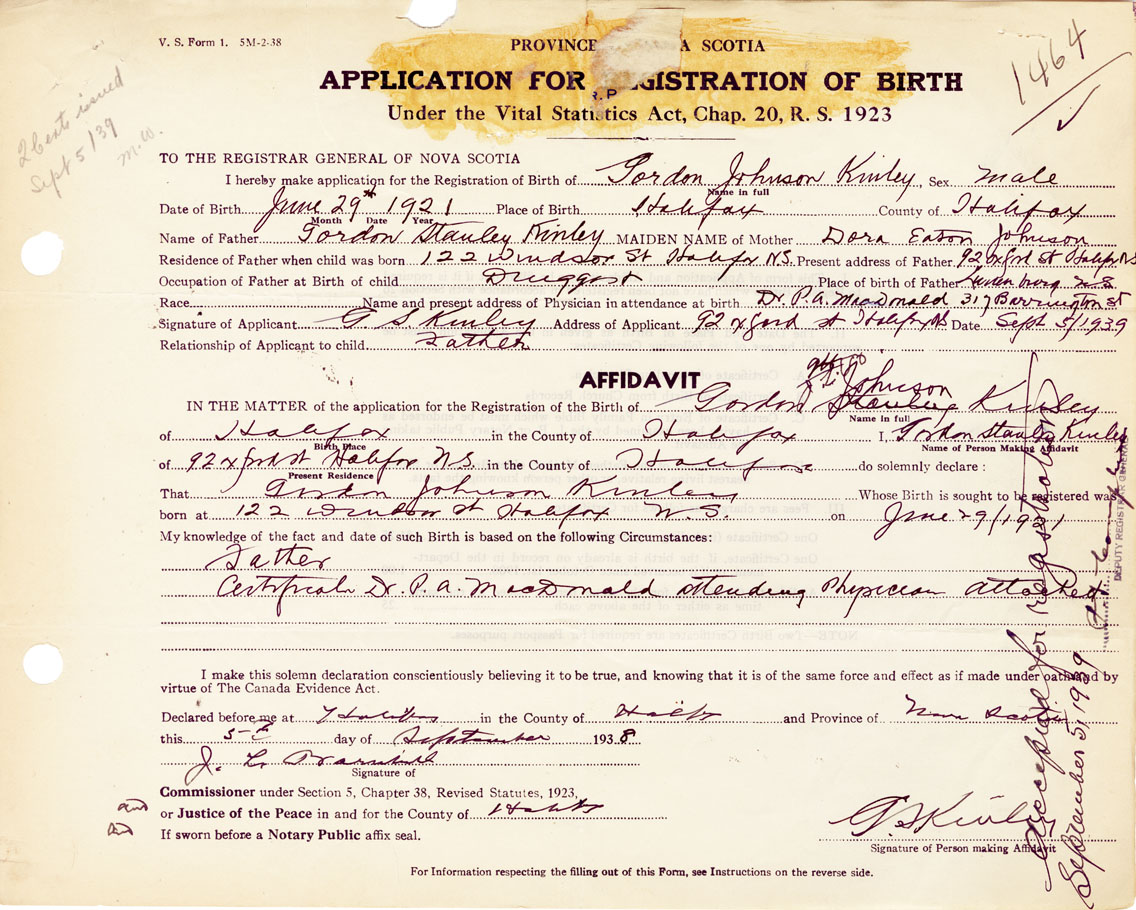 V. S. Form 1. 5M-2-38
PROVINCE A SCOTIA
1464
APPLICATION FOR REGISTRATION OF BIRTH
R.P
Under the Vital Statistics Act, Chap. 20, R. S. 1923
2 Certs issued
Sept 5/39
M.W.
TO THE REGISTRAR GENERAL OF NOVA SCOTIA
I hereby make application for the Registration of Birth of Gordon Johnson Kinley, Sex Male
Name in full
Date of Birth June 29th 1921 Place of Birth Halifax County of Halifax
Month Date Year
Name of Father Gordon Stanley Kinley MAIDEN NAME of Mother Dora Eaton Johnson
Residence of Father when child was born 122 Windsor St Halifax N.S. Present address of Father 92 Oxford St Halifax NS
Occupation of Father at Birth of child Druggist Place of birth of Father Lunenburg N.S
Race Name and present address of Physician in attendance at birth Dr. P.A. MacDonald 317 Barrington St
Signature of Applicant G S Kinley Address of Applicant 92 Oxford St Halifax NS Date Sept 5/1939
Relationship of Applicant to child Father
AFFIDAVIT
Johnson
IN THE MATTER of the application for the Registration of the Birth of Gordon Stanley Kinley
Name in full
of Halifax in the County of Halifax I, Gordon Stanley Kinley
Birth Place Name of Person Making Affidavit
of 92 Oxford St Halifax N.S. in the County of Halifax do solemnly declare :
Present Residence
That Gordon Johnson Kinley Whose Birth is sought to be registered was
born at 122 Windsor St Halifax N.S. on June 29/1921
My knowledge of the fact and date of such Birth is based on the following Circumstances:
Father
Certificate Dr. P. A. MacDonald attending Physician attached
I make this solemn declaration conscientiously believing it to be true, and knowing that it is of the same force and effect as if made under oath and by
virtue of The Canada Evidence Act.
Declared before me at Halifax in the County of Halifax and Province of Nova Scotia
this 5th day of September 1938
J. L. Barnhill
Signature of
Commissioner under Section 5, Chapter 38, Revised Statutes, 1923,
or Justice of the Peace in and for the County of Halifax
and
and
If sworn before a Notary Public affix seal.
G. S Kinley
Signature of Person making Affidavit
For Information respecting the filling out of this Form, see Instructions on the reverse side.
Accepted for registration
September 5, 1939
DEPUTY REGISTRAR GENERAL